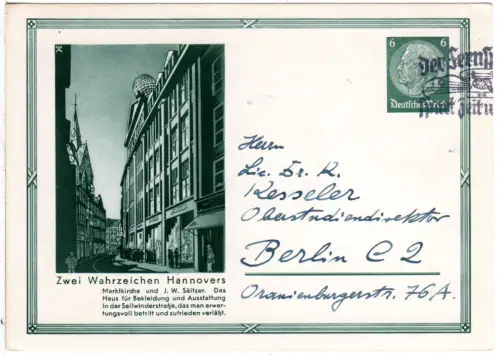 6 6
Deutsches Reich
der Ferns
spart Zeit u
Herrn
Lic. Dr. K.
Kesseler
Oberstudiendirektor
Berlin C 2
Oranienburgerstr. 76 A.
Zwei Wahrzeichen Hannovers
Marktkirche und J. W. Sältzer. Das
Haus für Bekleidung und Ausstattung
in der Seilwinderstraße, das man erwar-
tungsvoll betritt und zufrieden verläßt.